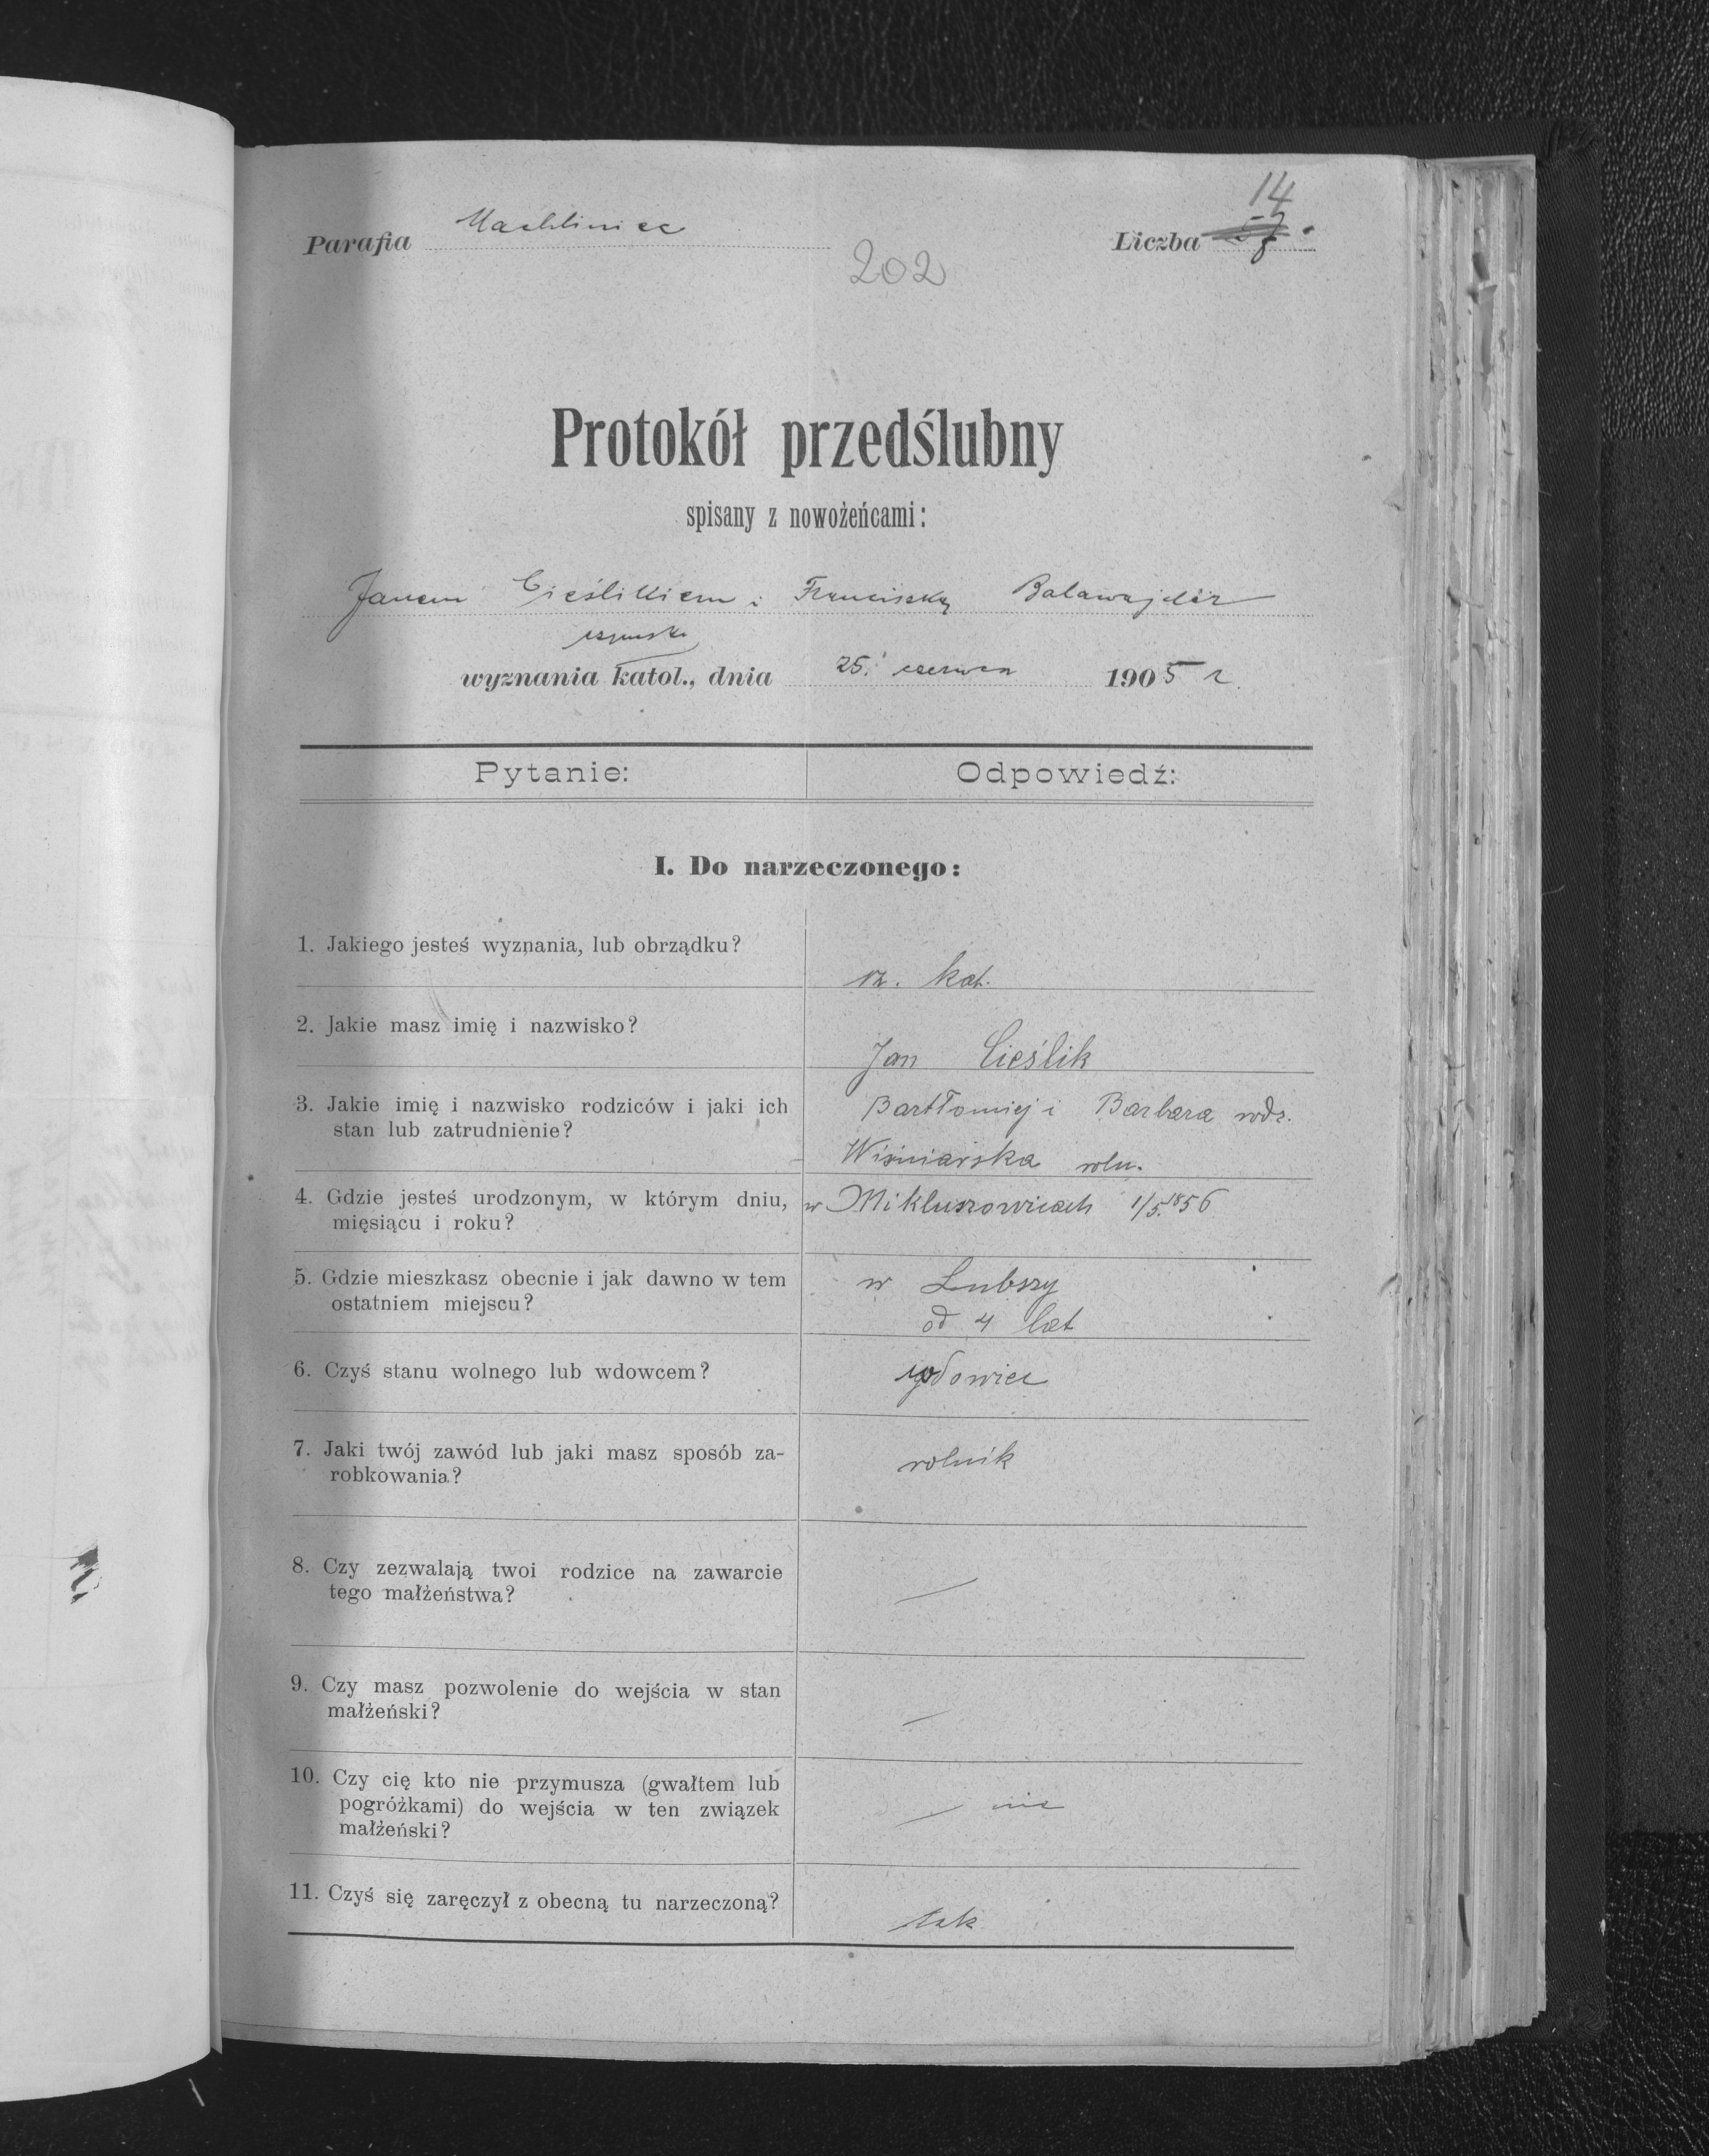 14
Parafia Machliniec Liczba 57.
202
Protokół przedślubny
spisany z nowożeńcami:
Janem Cieślikiem i Franciszką Balawajder
wyznania katol., dnia 25. czerwca 1905 r.
Pytanie: Odpowiedź:
I. Do narzeczonego:
1. Jakiego jesteś wyznania, lub obrządku?
rz. kat.
2. Jakie masz imię i nazwisko?
Jan Cieślik
3. Jakie imię i nazwisko rodziców i jaki ich Bartłomiej i Barbara rodz.
stan lub zatrudnienie?
Wiśniarska roln.
4. Gdzie jesteś urodzonym, w którym dniu, w Mikluszowicach 1/5. 1856
mięsiącu i roku?
5. Gdzie mieszkasz obecnie i jak dawno w tem w Lubszy
ostatniem miejscu? od 4 lat
6. Czyś stanu wolnego lub wdowcem? wdowiec
7. Jaki twój zawód lub jaki masz sposób za- rolnik
robkowania?
8. Czy zezwalają twoi rodzice na zawarcie —
tego małżeństwa?
9. Czy masz pozwolenie do wejścia w stan
małżeński? —
10. Czy cię kto nie przymusza (gwałtem lub
pogróżkami) do wejścia w ten związek — nie
małżeński?
11. Czyś się zaręczył z obecną tu narzeczoną?
tak